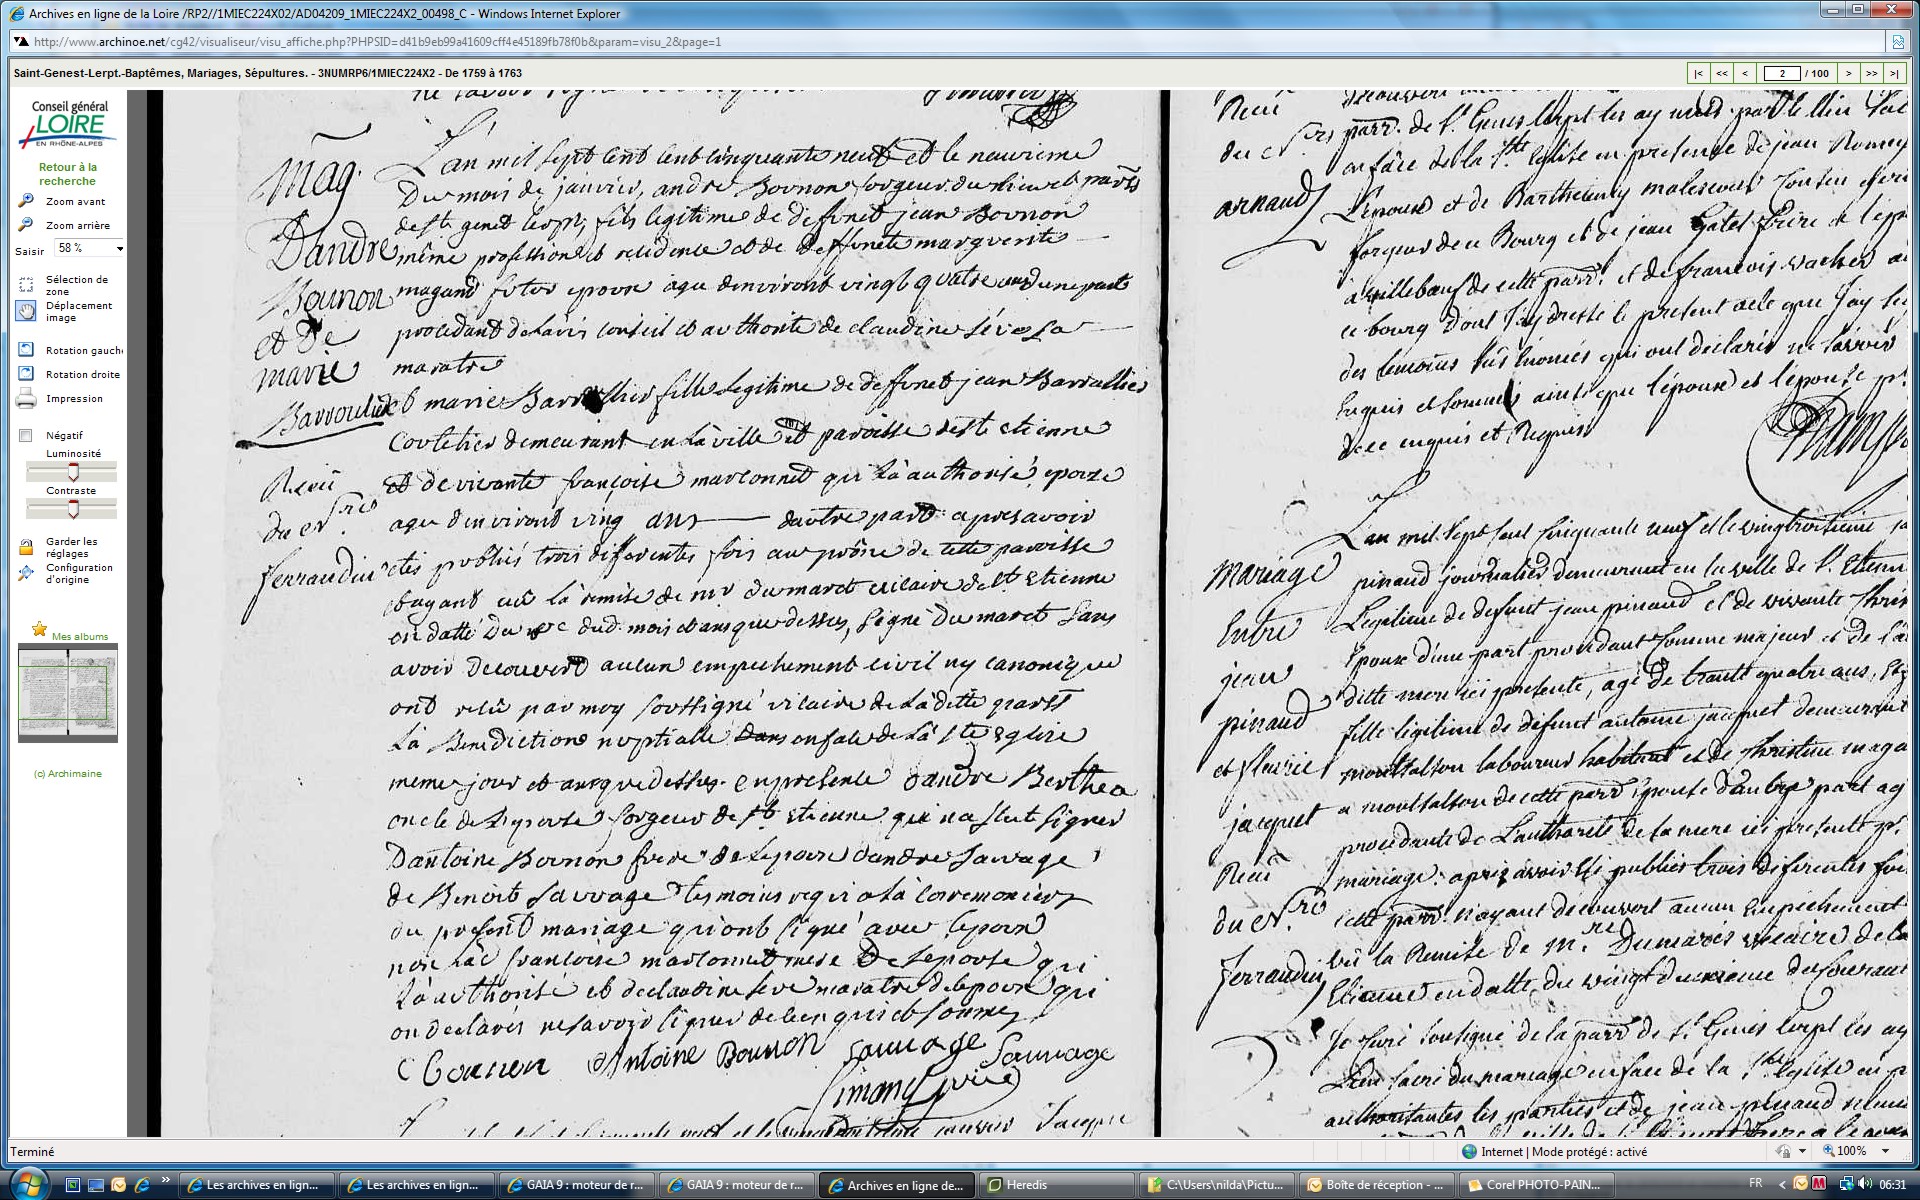 Archives en ligne de la Loire /RP2//1MIEC224X02/AD04209_1MIEC224X2_00498_C - Windows Internet Explorer
http://www.archinoe.net/cg42/visualiseur/visu_affiche.php?PHPSID=d41b9eb99a41609cff4e45189fb78f0b&param=visu_2&page=1
Saint-Genest-Lerpt.-Baptêmes, Mariages, Sépultures. - 3NUMRP6/1MIEC224X2 - De 1759 à 1763
|< << < 2 / 100 > >> >|
Conseil général
LOIRE
EN RHÔNE-ALPES
Retour à la
recherche
Zoom avant
Zoom arrière
Saisir 58 %
Sélection de
zone
Déplacement
image
Rotation gauch
Rotation droite
Impression
Négatif
Luminosité
Contraste
Garder les
réglages
Configuration
d'origine
Mes albums
(c) Archimaine
Mag.
Dandré
Bounon
et de
marie
Barroulier
Receu
du Cn.
ferraudin
L'an mil sept cent cent cinquante neuf et le neuvieme
Du mois de janvier, andré Bovnon forgeur du lieu et parss
de st genet lerpt, fils legitime de deffunct jean Bovnon
même profession et residence et de deffuncte marguerite
magand futur epoux agé d'environt vingt quatre ans d'une part
procedant de l'avis conseil et authorité de claudine séve sa
maratre
et marie Barrallier fille legitime de deffunct jean Barrallier
Coutelier demeurant en la ville et paroisse de st etienne
et de vivante françoise marconnet qui l'à authorisé, epouze
agée d'environt ving ans d'autre part apres avoir
etés publiés trois differentes fois au prône de cette paroisse
et ayant vû la remise de mr dumarest vicaire de st Etienne
en datte du dud. mois et an que dessus, signé Dumarest sans
avoir decouvert aucun empechement civil ny canonique
ont reçû par moy soussigné vicaire de la ditte parss
la Benediction nuptialle en face de la ste Eglise
meme jour et an que dessus. en presence d'andré Berthea
oncle de l'epouse forgeur de st etienne qui n'a sçut signer
D'antoine Bovnon frere de l'epoux d'andré Sauvage
de Benoit Sauvage temoins requi a la ceremonies
du present mariage qui ont signé avec l'epoux
non lad françoise marconnet mere de l'epouse qui
l'à authorisé et de claudine seve maratre de l'epoux qui
on declarés ne savoir signer de ce enquis et sommés
Bounon Antoine Bounon Sauvage Sauvage
Simand
Receu
du Cn.
arnaud
parr. de st. Genes lerpt les ay
en face de la ste eglise en presence de jean Romey
L'epoux et de Barthelemy malescour
forgeur de ce Bourg et de jean Gatel frere de l'ep
de cette parr. et de francois vacher
ce bourg dont j'ay dressé le present acte que j'ay
des temoins sus només qui ont declarés ne savoir
enquis et sommés ainsi que l'epoux et l'epouse
de ce enquis et Requis
mariage
Entre
jean
pinaud
et fleurie
jacquet
Receu
du Cn.
ferraudin
L'an mil sept cent cinquante neuf et le vingtroisieme
pinaud journalier demeurant en la ville de st. Etienne
Legitime de defunt jean pinaud et de vivante Christ
Epoux d'une part procedant comme majeur et de l'a
ditte mere ici presente, agé de trante quatre ans, et
fille legitime de defunt antoine jacquet demeurant
montsalson laboureur habitant et de christine maga
a montsalson de cette parr. epouse d'autre part ag
procedante de l'authorité de sa mere ici presente
mariage. apres avoir été publiés trois differentes foi
cette parr. n'ayant decouvert aucun Empechement
vû la Remise de Mr. Dumarest vicaire de la
Etienne en datte du vingt deuxieme du courant
Je curé soussigné de la parr. de st. Genes lerpt les ay
Lien sacré du mariage en face de la ste eglise en p
authoritantes les parties et de jean pinaud
Terminé
Internet | Mode protégé : activé
100%
Les archives en lign...
Les archives en lign...
GAIA 9 : moteur de r...
GAIA 9 : moteur de r...
Archives en ligne de...
Heredis
C:\Users\nilda\Pictu...
Boîte de réception - ...
Corel PHOTO-PAIN...
FR
06:31